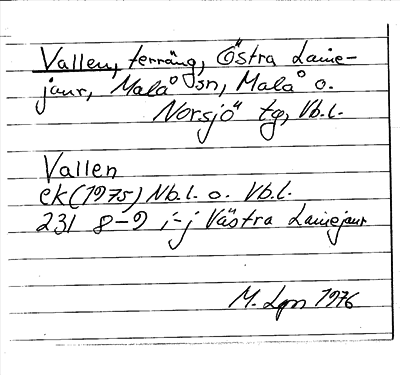 Vallen, terräng, Östra Lainejaur,
jaur, Malå sn, Malå o.
Norsjö tg, Vb.l.
Vallen
ek (1975) Nb.l. o. Vb.l.
231 8-9 i-j Västra Lainejaur
M. Lgn 1976